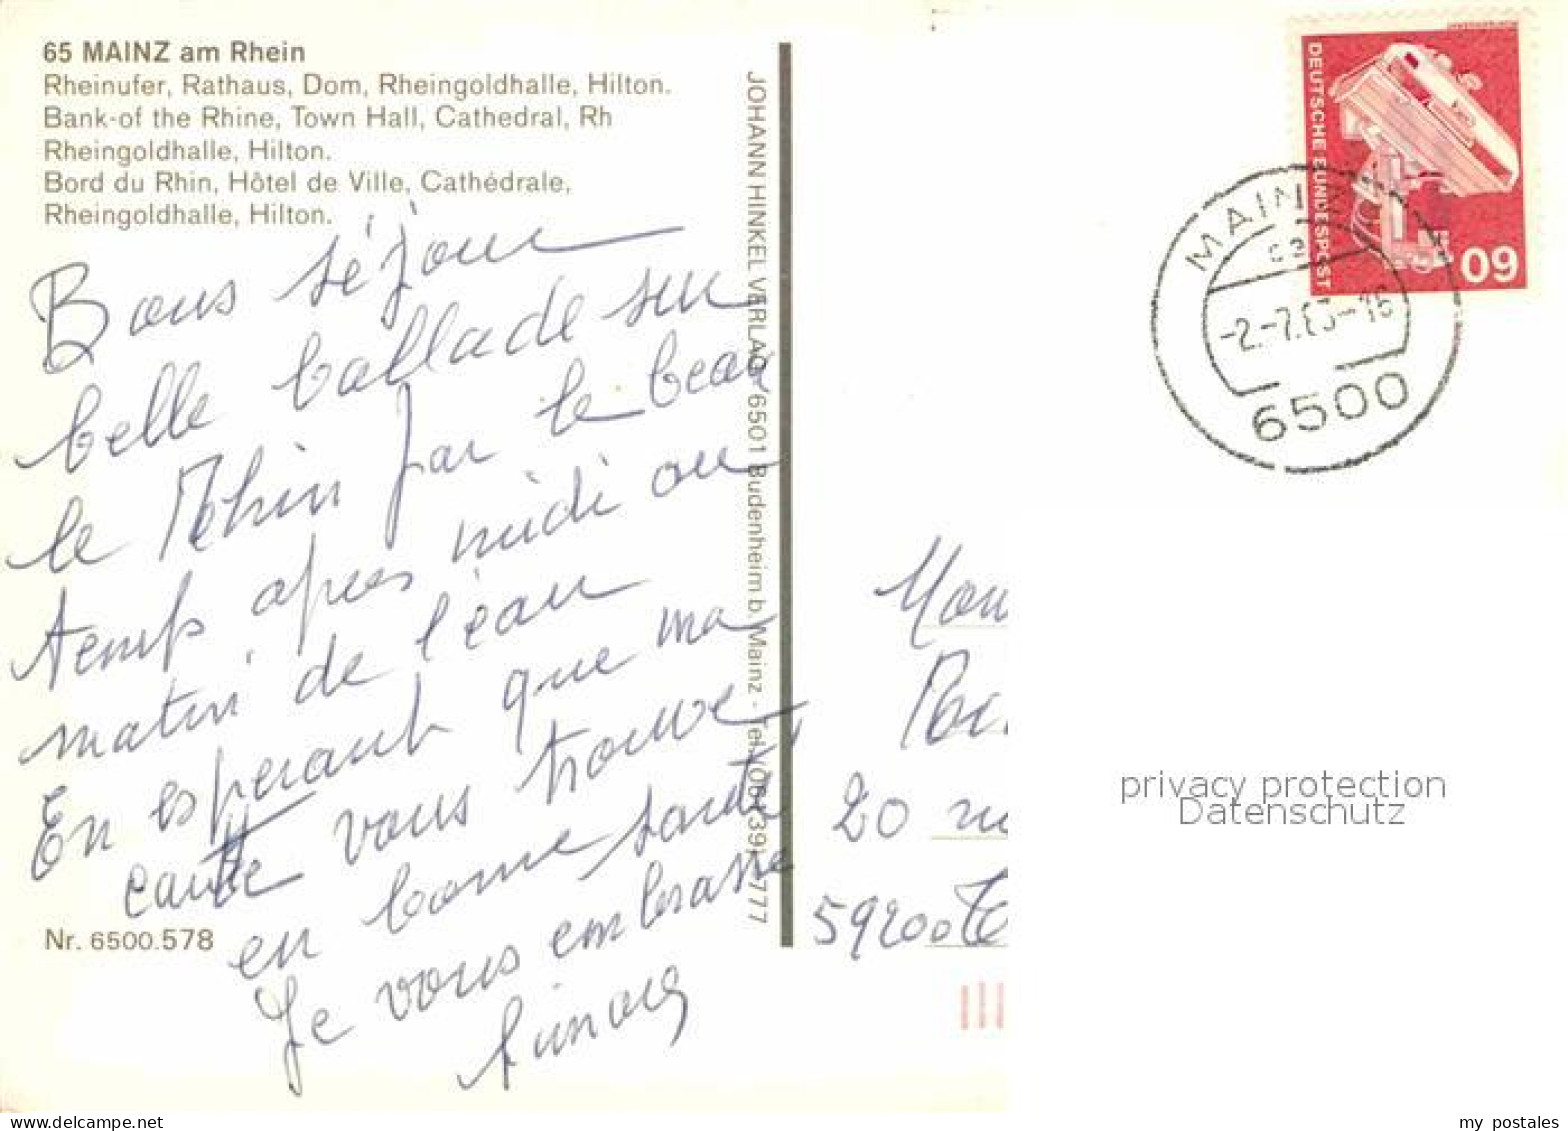 65 MAINZ am Rhein
Rheinufer, Rathaus, Dom, Rheingoldhalle, Hilton.
Bank-of the Rhine, Town Hall, Cathedral, Rh
Rheingoldhalle, Hilton.
Bord du Rhin, Hôtel de Ville, Cathédrale,
Rheingoldhalle, Hilton.
Bons séjour
belle ballade sur
le Rhin par le beau
temps apres midi ou
matin de l'eau
En esperant que ma
carte vous trouve
en bonne sante
Je vous embrasse
Nr. 6500.578
JOHANN HINKEL VERLAG, 6501 Budenheim b. Mainz - Tel. 777
DEUTSCHE BUNDESPOST
60
MAINZ
-2.-7.8 -16
6500
Mon
20 ru
59200
privacy protection
Datenschutz
my postales